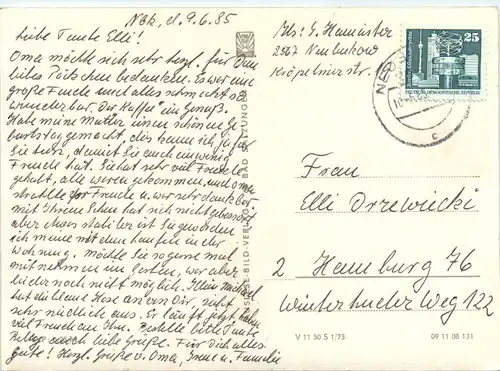 Nbk, d. 9.6.85
Liebe Tante Elli!
Oma möchte sich sehr herzl. für Dein
liebes bedanken. Es war eine
große Freude und alles schmeckt so
wunderbar. Der Kaffee ein Genuß.
Habe meine Mutter einen schönen Ge
burtstag gemacht, dies kann ich ja für
Sie tun, damit Sie auch ein wenig
Freude hat. Sie hat sehr viel Freude
gehabt, alle waren gekommen, und Oma
strahlte vor Freude u. war sehr dankbar.
mit Ihrem hat sich nicht gebessert
aber etwas ist Sie geworden
ich meine mit dem laufen in der
Wohnung. Möchte Sie so gerne mal
mitnehmen im Garten, war aber
leider noch nicht möglich.
hat die kleine Hose an von Dir, sieht
sehr niedlich aus. Er läuft jetzt, haben
viel Freude an Ihm. liebe Tante
noch liebe Grüße. Für Dich alles
gute! Herzl. Grüße v. Oma, u. Familie
BILD-VERLAG BAD SALZUNGEN
Abs: G. Hamister
2567 Neubukow
Kröpeliner str.
25
c
Frau
Elli Drzewiecki
2 Hamburg 76
Winterhuder Weg 122
V 11 50 S 1/73
09 11 08 131